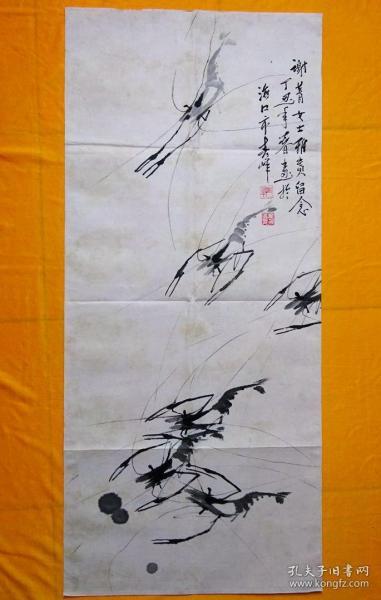 谢菁女士雅赏留念
丁丑年春画于
海口市 秀峰
孔夫子旧书网
www.kongfz.com